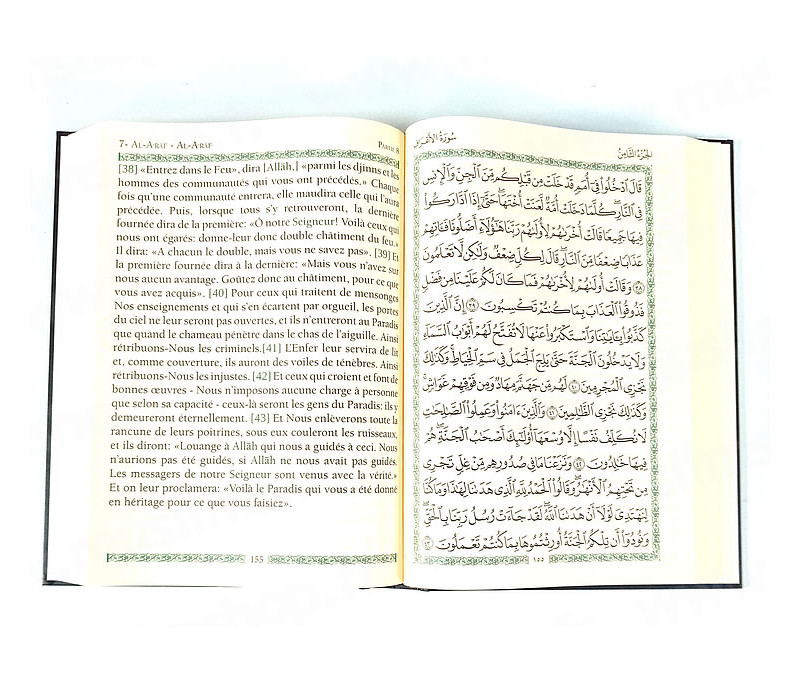 7- AL-A'RAF - AL-A'RAF PARTIE 8
[38] «Entrez dans le Feu», dira [Allāh,] «parmi les djinns et les
hommes des communautés qui vous ont précédés.» Chaque
fois qu'une communauté entrera, elle maudira celle qui l'aura
précédée. Puis, lorsque tous s'y retrouveront, la dernière
fournée dira de la première: «Ô notre Seigneur! Voilà ceux qui
nous ont égarés: donne-leur donc double châtiment du feu.»
Il dira: «A chacun le double, mais vous ne savez pas». [39] Et
la première fournée dira à la dernière: «Mais vous n'avez sur
nous aucun avantage. Goûtez donc au châtiment, pour ce que
vous avez acquis». [40] Pour ceux qui traitent de mensonges
Nos enseignements et qui s'en écartent par orgueil, les portes
du ciel ne leur seront pas ouvertes, et ils n'entreront au Paradis
que quand le chameau pénètre dans le chas de l'aiguille. Ainsi
rétribuons-Nous les criminels.[41] L'Enfer leur servira de lit
et, comme couverture, ils auront des voiles de ténèbres. Ainsi
rétribuons-Nous les injustes. [42] Et ceux qui croient et font de
bonnes œuvres - Nous n'imposons aucune charge à personne
que selon sa capacité - ceux-là seront les gens du Paradis: ils y
demeureront éternellement. [43] Et Nous enlèverons toute la
rancune de leurs poitrines, sous eux couleront les ruisseaux,
et ils diront: «Louange à Allāh qui nous a guidés à ceci. Nous
n'aurions pas été guidés, si Allāh ne nous avait pas guidés.
Les messagers de notre Seigneur sont venus avec la vérité.»
Et on leur proclamera: «Voilà le Paradis qui vous a été donné
en héritage pour ce que vous faisiez».
155
الجزء الثامن سورة الأعراف
قَالَ ٱدْخُلُوا۟ فِىٓ أُمَمٍ قَدْ خَلَتْ مِن قَبْلِكُم مِّنَ ٱلْجِنِّ وَٱلْإِنسِ
فِى ٱلنَّارِ كُلَّمَا دَخَلَتْ أُمَّةٌ لَّعَنَتْ أُخْتَهَا حَتَّىٰٓ إِذَا ٱدَّارَكُوا۟
فِيهَا جَمِيعًا قَالَتْ أُخْرَىٰهُمْ لِأُولَىٰهُمْ رَبَّنَا هَٰٓؤُلَآءِ أَضَلُّونَا فَـَٔاتِهِمْ
عَذَابًا ضِعْفًا مِّنَ ٱلنَّارِ قَالَ لِكُلٍّ ضِعْفٌ وَلَٰكِن لَّا تَعْلَمُونَ
٣٨ وَقَالَتْ أُولَىٰهُمْ لِأُخْرَىٰهُمْ فَمَا كَانَ لَكُمْ عَلَيْنَا مِن فَضْلٍ
فَذُوقُوا۟ ٱلْعَذَابَ بِمَا كُنتُمْ تَكْسِبُونَ ٣٩ إِنَّ ٱلَّذِينَ
كَذَّبُوا۟ بِـَٔايَٰتِنَا وَٱسْتَكْبَرُوا۟ عَنْهَا لَا تُفَتَّحُ لَهُمْ أَبْوَٰبُ ٱلسَّمَآءِ
وَلَا يَدْخُلُونَ ٱلْجَنَّةَ حَتَّىٰ يَلِجَ ٱلْجَمَلُ فِى سَمِّ ٱلْخِيَاطِ وَكَذَٰلِكَ
نَجْزِى ٱلْمُجْرِمِينَ ٤٠ لَهُم مِّن جَهَنَّمَ مِهَادٌ وَمِن فَوْقِهِمْ غَوَاشٍ
وَكَذَٰلِكَ نَجْزِى ٱلظَّٰلِمِينَ ٤١ وَٱلَّذِينَ ءَامَنُوا۟ وَعَمِلُوا۟ ٱلصَّٰلِحَٰتِ
لَا نُكَلِّفُ نَفْسًا إِلَّا وُسْعَهَآ أُو۟لَٰٓئِكَ أَصْحَٰبُ ٱلْجَنَّةِ هُمْ
فِيهَا خَٰلِدُونَ ٤٢ وَنَزَعْنَا مَا فِى صُدُورِهِم مِّنْ غِلٍّ تَجْرِى
مِن تَحْتِهِمُ ٱلْأَنْهَٰرُ وَقَالُوا۟ ٱلْحَمْدُ لِلَّهِ ٱلَّذِى هَدَىٰنَا لِهَٰذَا وَمَا كُنَّا
لِنَهْتَدِىَ لَوْلَآ أَنْ هَدَىٰنَا ٱللَّهُ لَقَدْ جَآءَتْ رُسُلُ رَبِّنَا بِٱلْحَقِّ
وَنُودُوٓا۟ أَن تِلْكُمُ ٱلْجَنَّةُ أُورِثْتُمُوهَا بِمَا كُنتُمْ تَعْمَلُونَ ٤٣
١٥٥